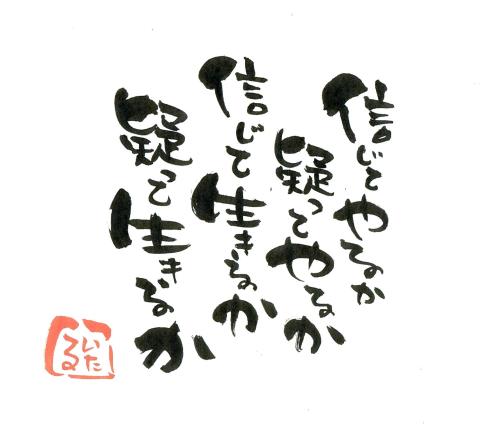 信じてやるか
疑ってやるか
信じて生きるか
疑って生きるか